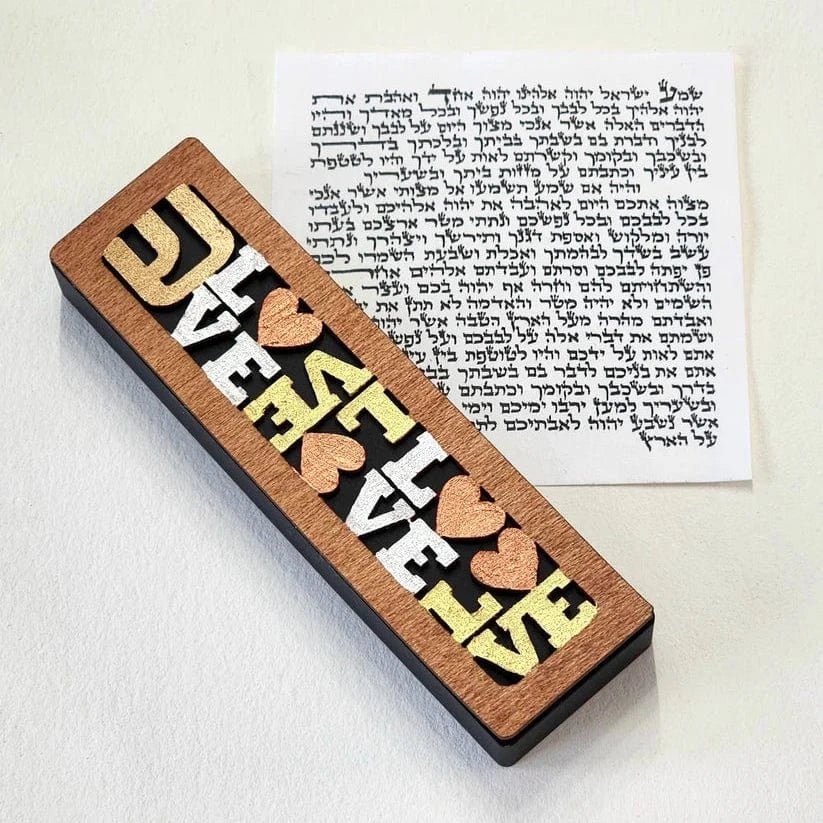 ש
L
VE
L
VE
L
VE
L
VE
שמע ישראל יהוה אלהינו יהוה אחד ואהבת את
יהוה אלהיך בכל לבבך ובכל נפשך ובכל מאדך והיו
הדברים האלה אשר אנכי מצוך היום על לבבך ושננתם
לבניך ודברת בם בשבתך בביתך ובלכתך בדרך
ובשכבך ובקומך וקשרתם לאות על ידך והיו לטטפת
בין עיניך וכתבתם על מזזות ביתך ובשעריך
והיה אם שמע תשמעו אל מצותי אשר אנכי
מצוה אתכם היום לאהבה את יהוה אלהיכם ולעבדו
בכל לבבכם ובכל נפשכם ונתתי מטר ארצכם בעתו
יורה ומלקוש ואספת דגנך ותירשך ויצהרך ונתתי
עשב בשדך לבהמתך ואכלת ושבעת השמרו לכם
פן יפתה לבבכם וסרתם ועבדתם אלהים
והשתחויתם להם וחרה אף יהוה בכם
השמים ולא יהיה מטר והאדמה לא תתן את
ואבדתם מהרה מעל הארץ הטבה אשר יהוה
ושמתם את דברי אלה על לבבכם ועל
אתם לאות על ידכם והיו לטוטפת בין
אתם את בניכם לדבר בם בשבתך
בדרך ובשכבך ובקומך וכתבתם
ובשעריך למען ירבו ימיכם וימי
אשר נשבע יהוה לאבתיכם
על הארץ